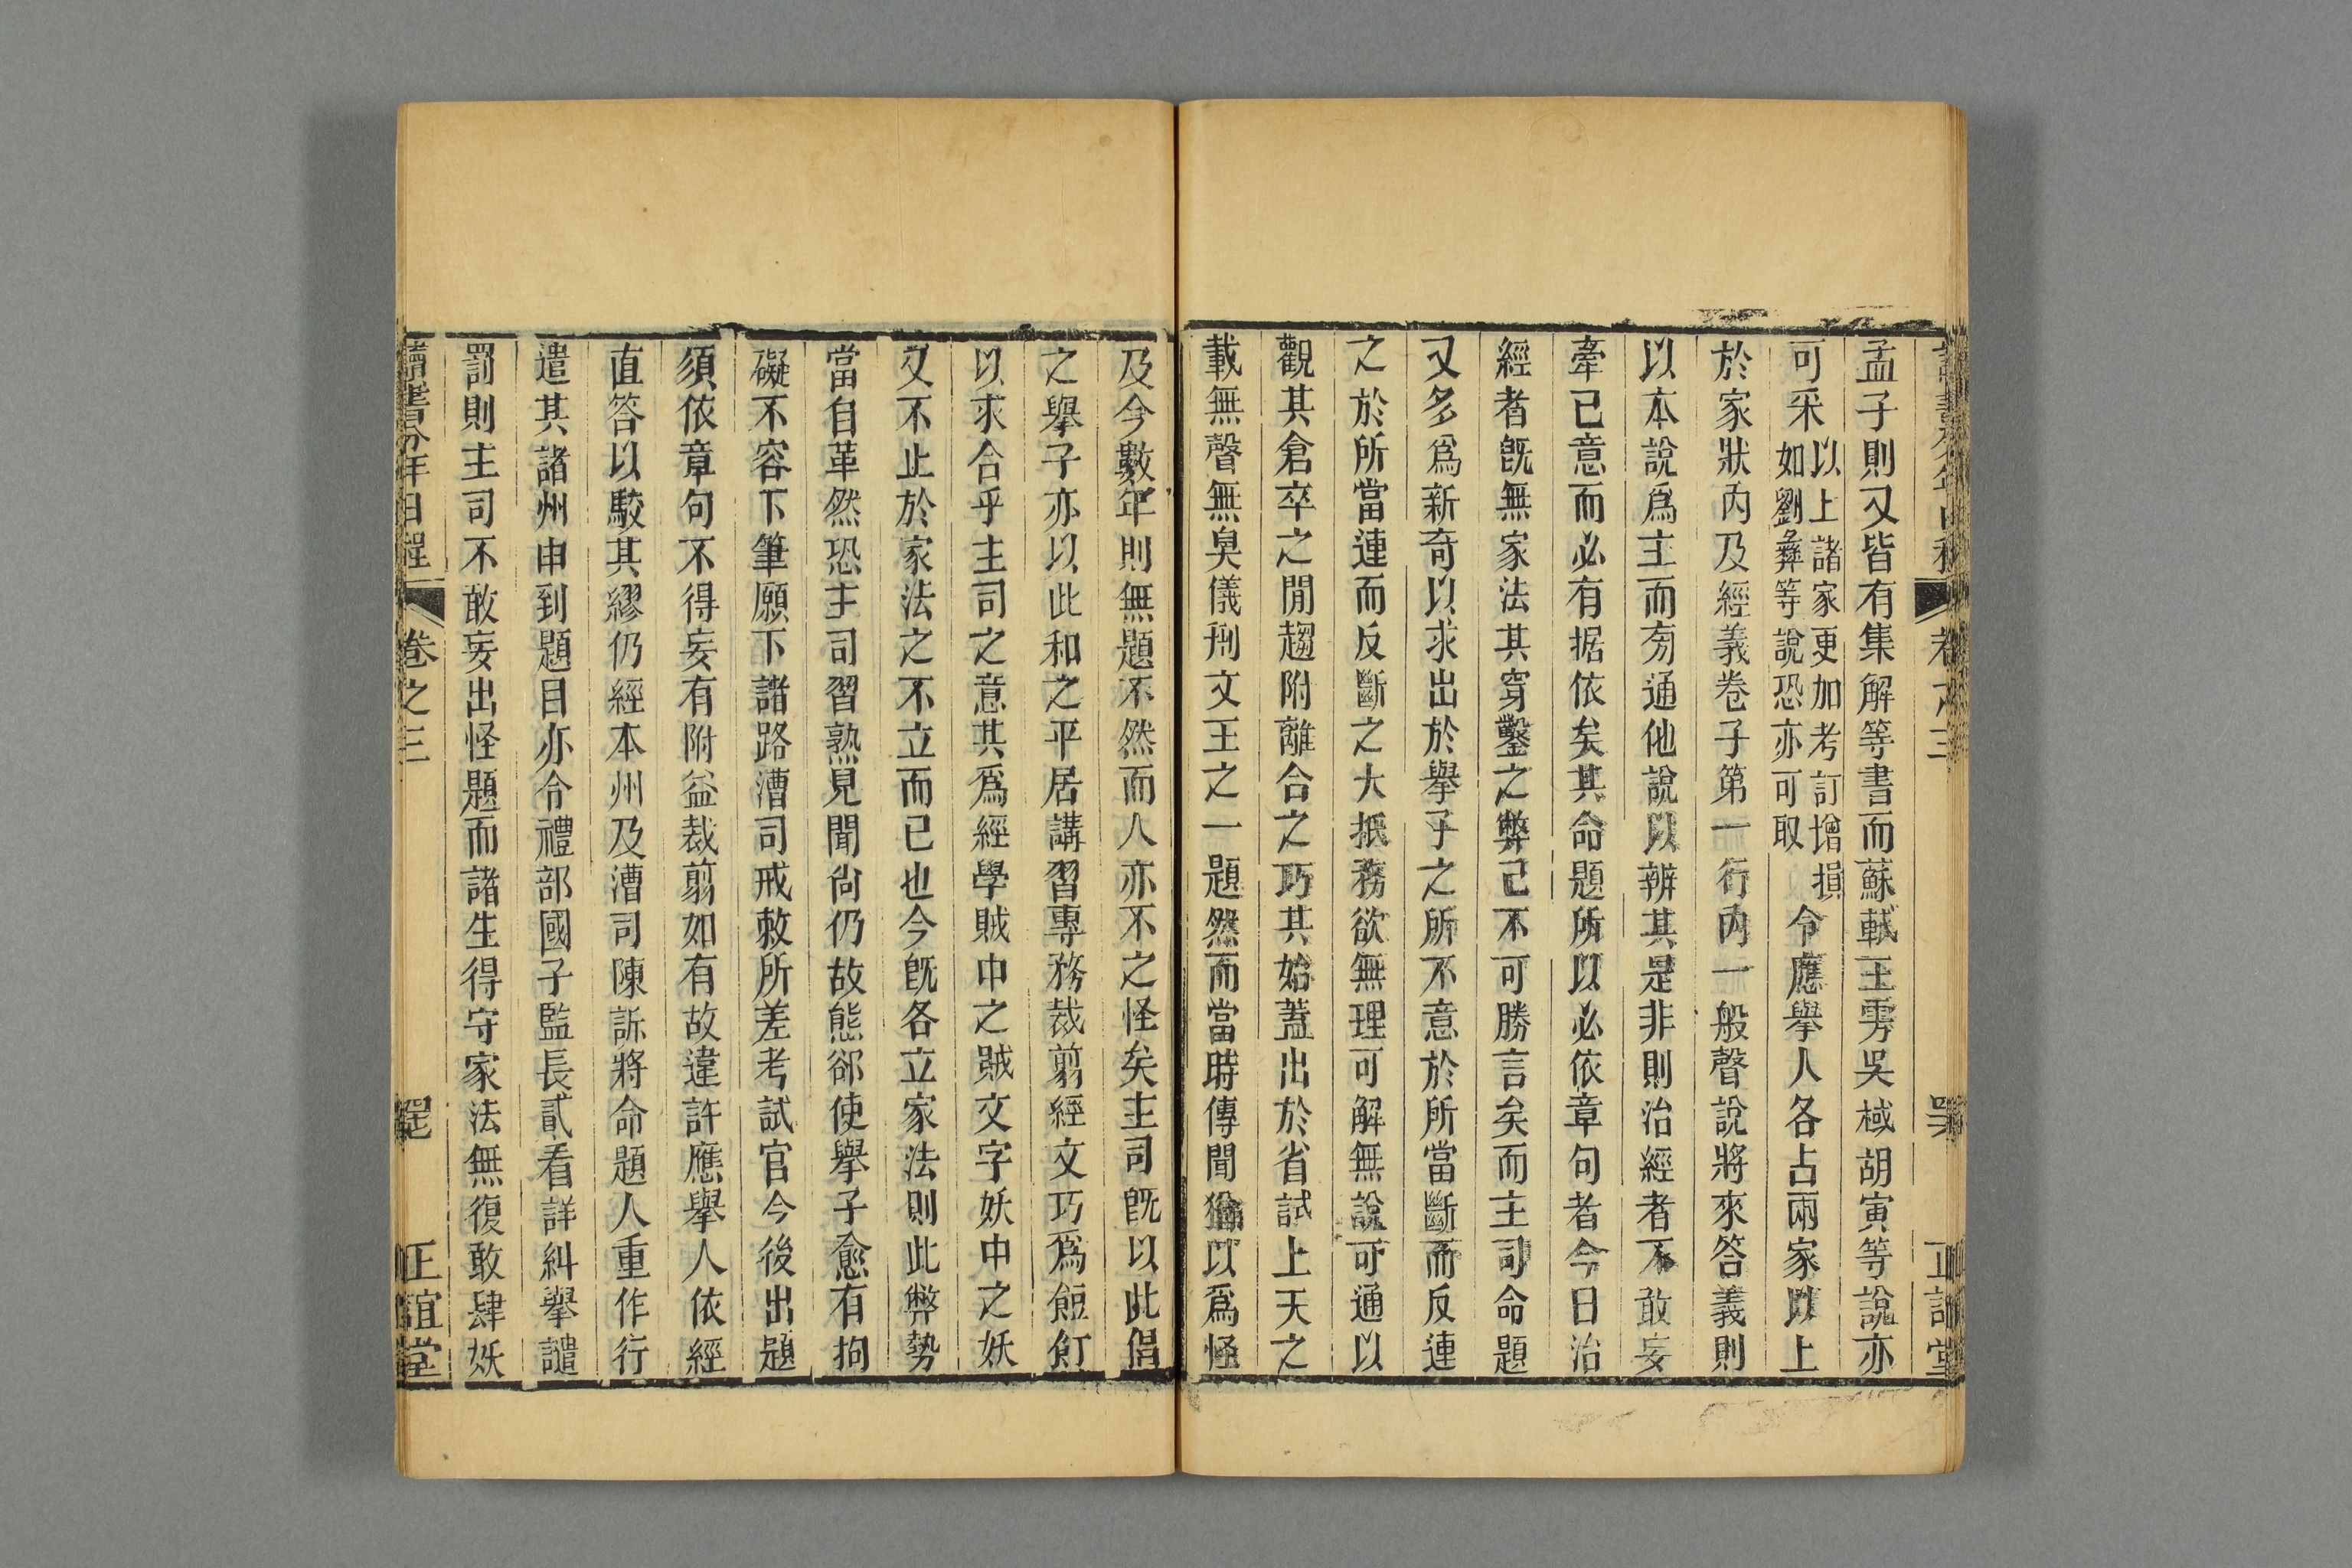 孟子則又皆有集解等書而蘇軾王雱吳棫胡寅等說亦
可采以上諸家更加考訂增損如劉彝等說恐亦可取令應舉人各占兩家以上
於家狀內及經義卷子第一行內一般聲說將來答義則
以本說爲主而旁通他說以辨其是非則治經者不敢妄
牽已意而必有据依矣其命題所以必依章句者今日治
經者旣無家法其穿鑿之弊已不可勝言矣而主司命題
又多爲新奇以求出於舉子之所不意於所當斷而反連
之於所當連而反斷之大抵務欲無理可解無說可通以
觀其倉卒之閒趨附離合之巧其始蓋出於省試上天之
載無聲無臭儀刑文王之一題然而當時傳聞猶以爲怪
及今數年則無題不然而人亦不之怪矣主司旣以此倡
之舉子亦以此和之平居講習專務裁剪經文巧爲餖飣
以求合乎主司之意其爲經學賊中之賊文字妖中之妖
又不止於家法之不立而已也今旣各立家法則此弊勢
當自革然恐主司習熟見聞尙仍故態郤使舉子愈有拘
礙不容下筆願下諸路漕司戒敕所差考試官今後出題
須依章句不得妄有附益裁剪如有故違許應舉人依經
直答以駮其繆仍經本州及漕司陳訴將命題人重作行
遣其諸州申到題目亦令禮部國子監長貳看詳糾舉譴
罰則主司不敢妄出怪題而諸生得守家法無復敢肆妖
讀書分年日程
卷之三
正誼堂